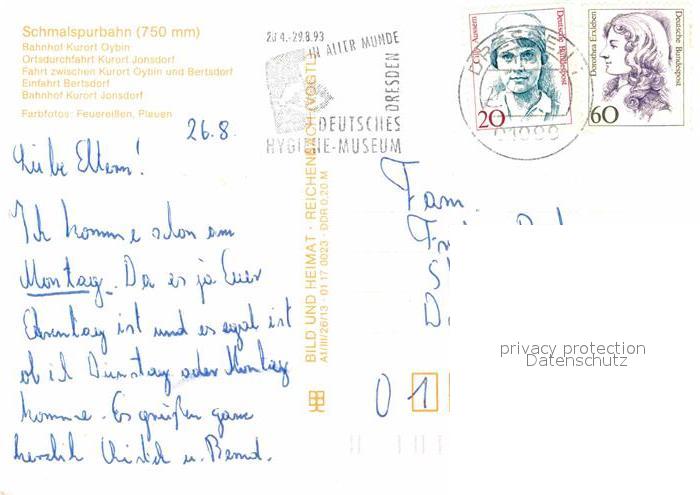 Schmalspurbahn (750 mm)
Bahnhof Kurort Oybin
Ortsdurchfahrt Kurort Jonsdorf
Fahrt zwischen Kurort Oybin und Bertsdorf
Einfahrt Bertsdorf
Bahnhof Kurort Jonsdorf
Farbfotos: Feuereißen, Plauen
26.8.
Liebe Eltern!
Ich komme schon am
Montag. Da es ja Euer
Ehrentag ist und es egal ist
ob ich Dienstag oder Montag
komme. Es grüßen ganz
herzlich Christel u. Bernd.
29.8.93
IN ALLER MUNDE
DRESDEN
DEUTSCHES
HYGIENE-MUSEUM
BILD UND HEIMAT · REICHENBACH (VOGTL)
A1/III/26/13 · 01 17 0023 · DDR 0,20 M
Deutsche Bundespost
20
Dorothea Erxleben
Deutsche Bundespost
60
Fam.
01
privacy protection
Datenschutz